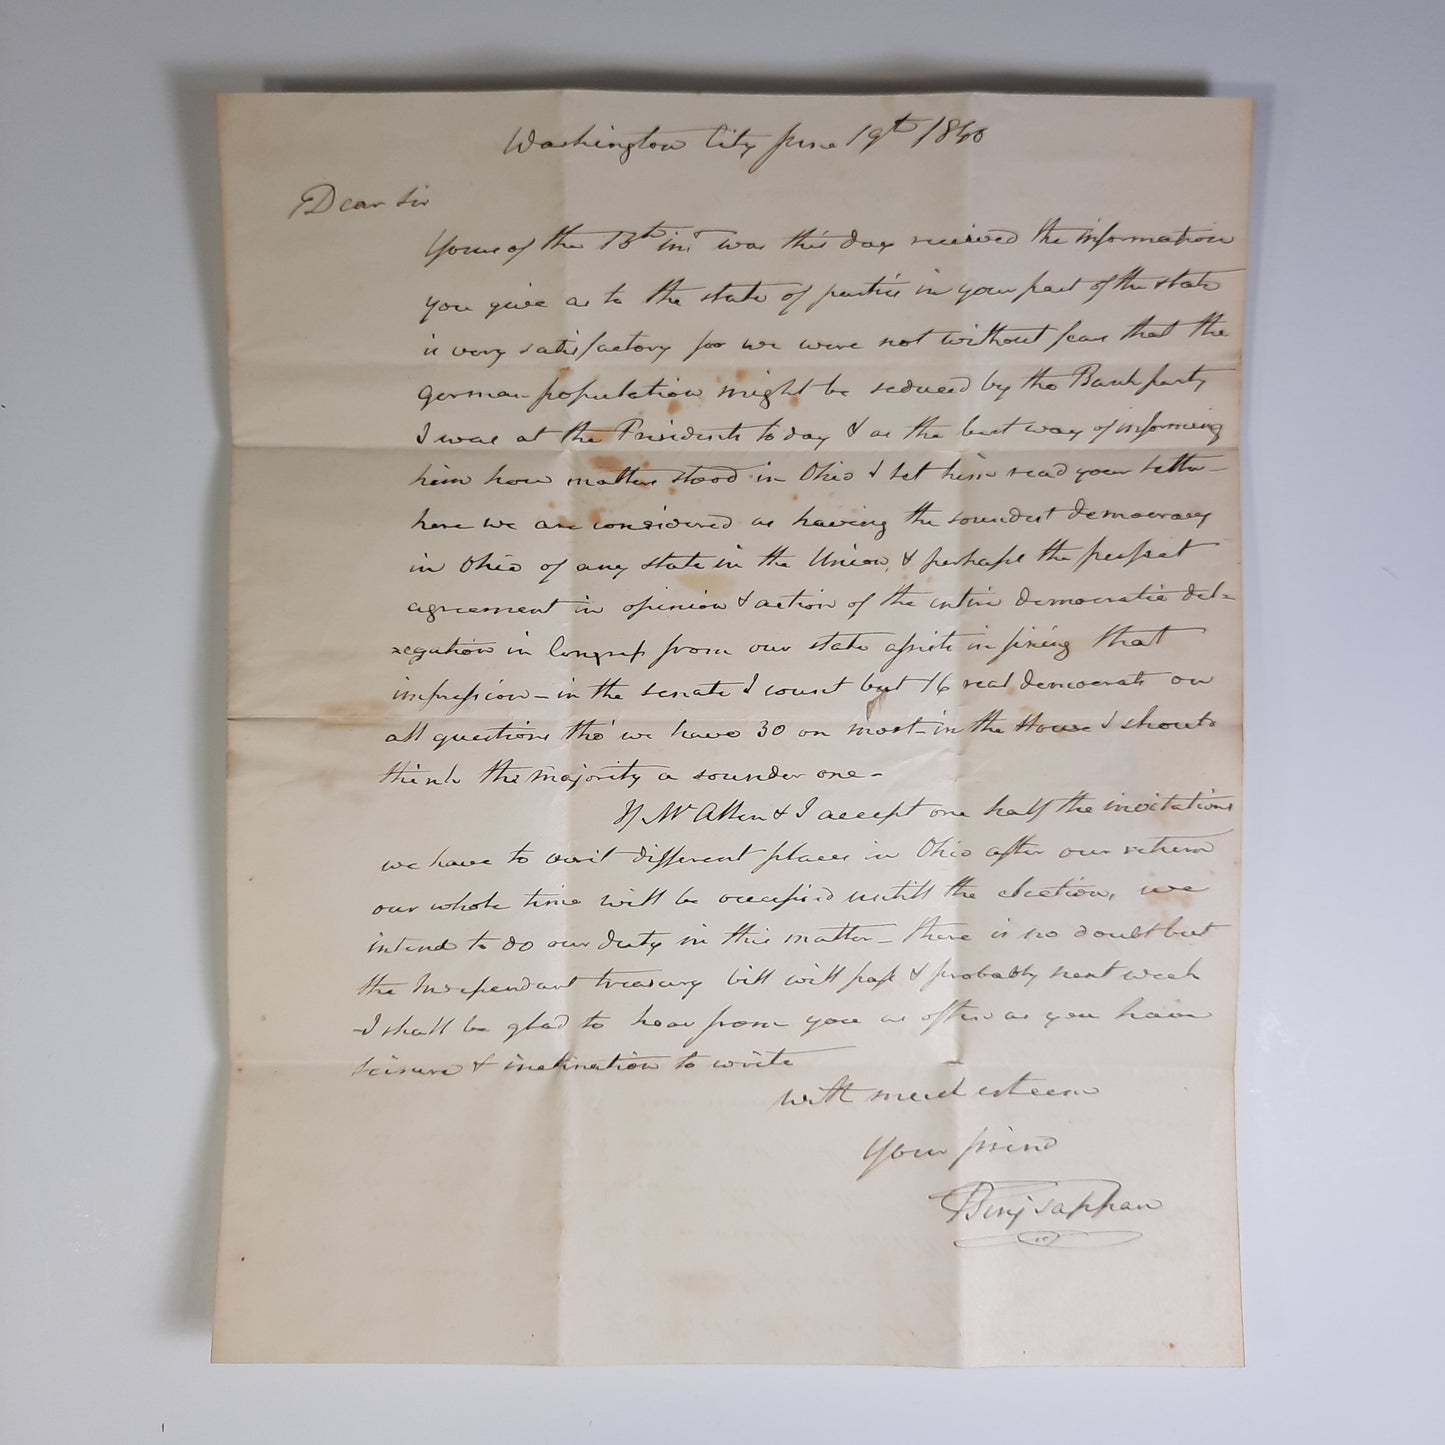 Washington City June 19th 1840
Dear Sir
Yours of the 13th inst was this day received the information
you give as to the state of parties in your part of the state
is very satisfactory for we were not without fear that the
German population might be seduced by the Bank party
I was at the Presidents to day & as the best way of informing
him how matters stood in Ohio I let him read your letter –
here we are considered as having the soundest democracy
in Ohio of any state in the Union, & perhaps the perfect
agreement in opinion & action of the entire democratic del=
=egation in Congress from our state assists in fixing that
impression – in the senate I count but 16 real democrats on
all questions tho' we have 30 on most – in the House I should
think the majority a sounder one –
If Mr Allen & I accept one half the invitations
we have to visit different places in Ohio after our return
our whole time will be occupied untill the election, we
intend to do our duty in this matter – there is no doubt but
the Independant treasury bill will pass & probably next week
– I shall be glad to hear from you as often as you have
leisure & inclination to write
with much esteem
Your friend
Benj Tappan